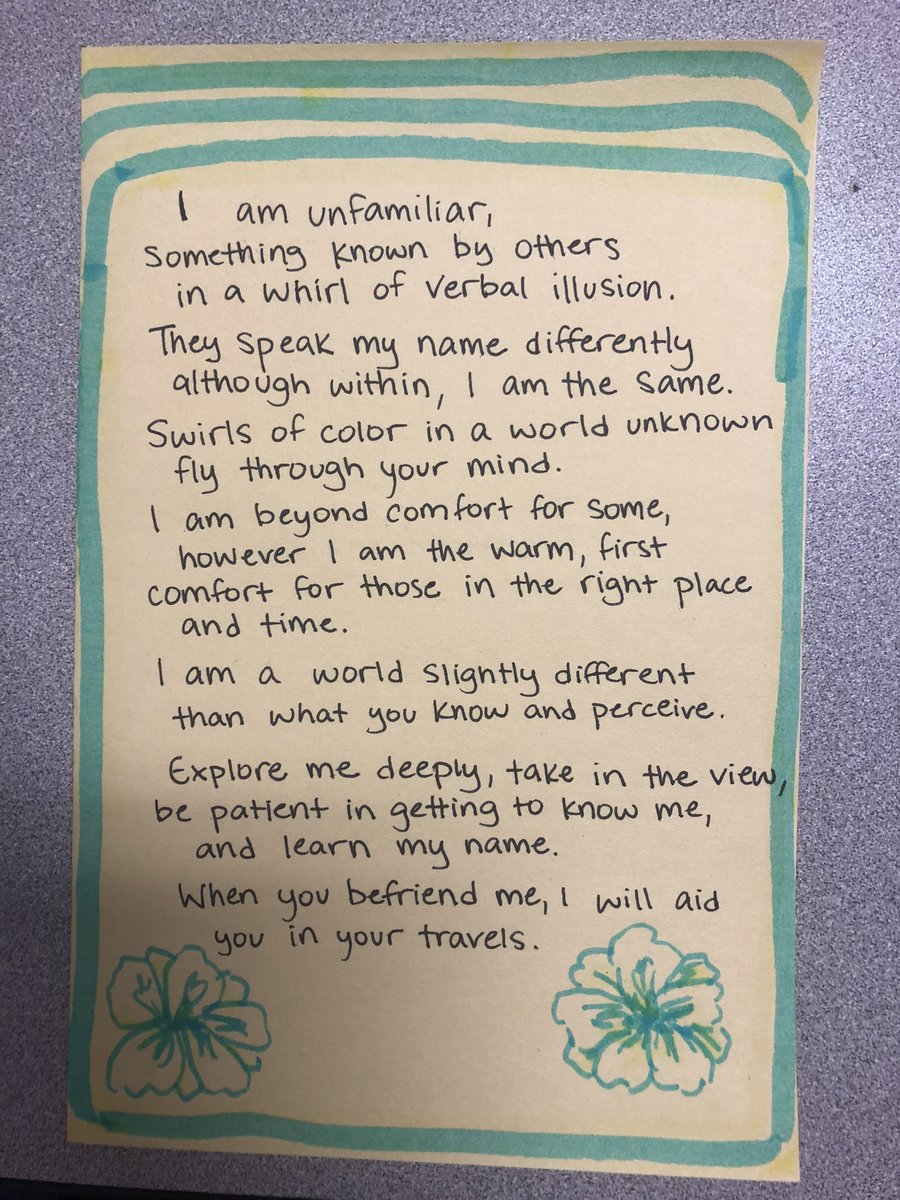 I am unfamiliar,
something known by others
in a whirl of verbal illusion.
They speak my name differently
although within, I am the same.
Swirls of color in a world unknown
fly through your mind.
I am beyond comfort for some,
however I am the warm, first
comfort for those in the right place
and time.
I am a world slightly different
than what you know and perceive.
Explore me deeply, take in the view,
be patient in getting to know me,
and learn my name.
When you befriend me, I will aid
you in your travels.